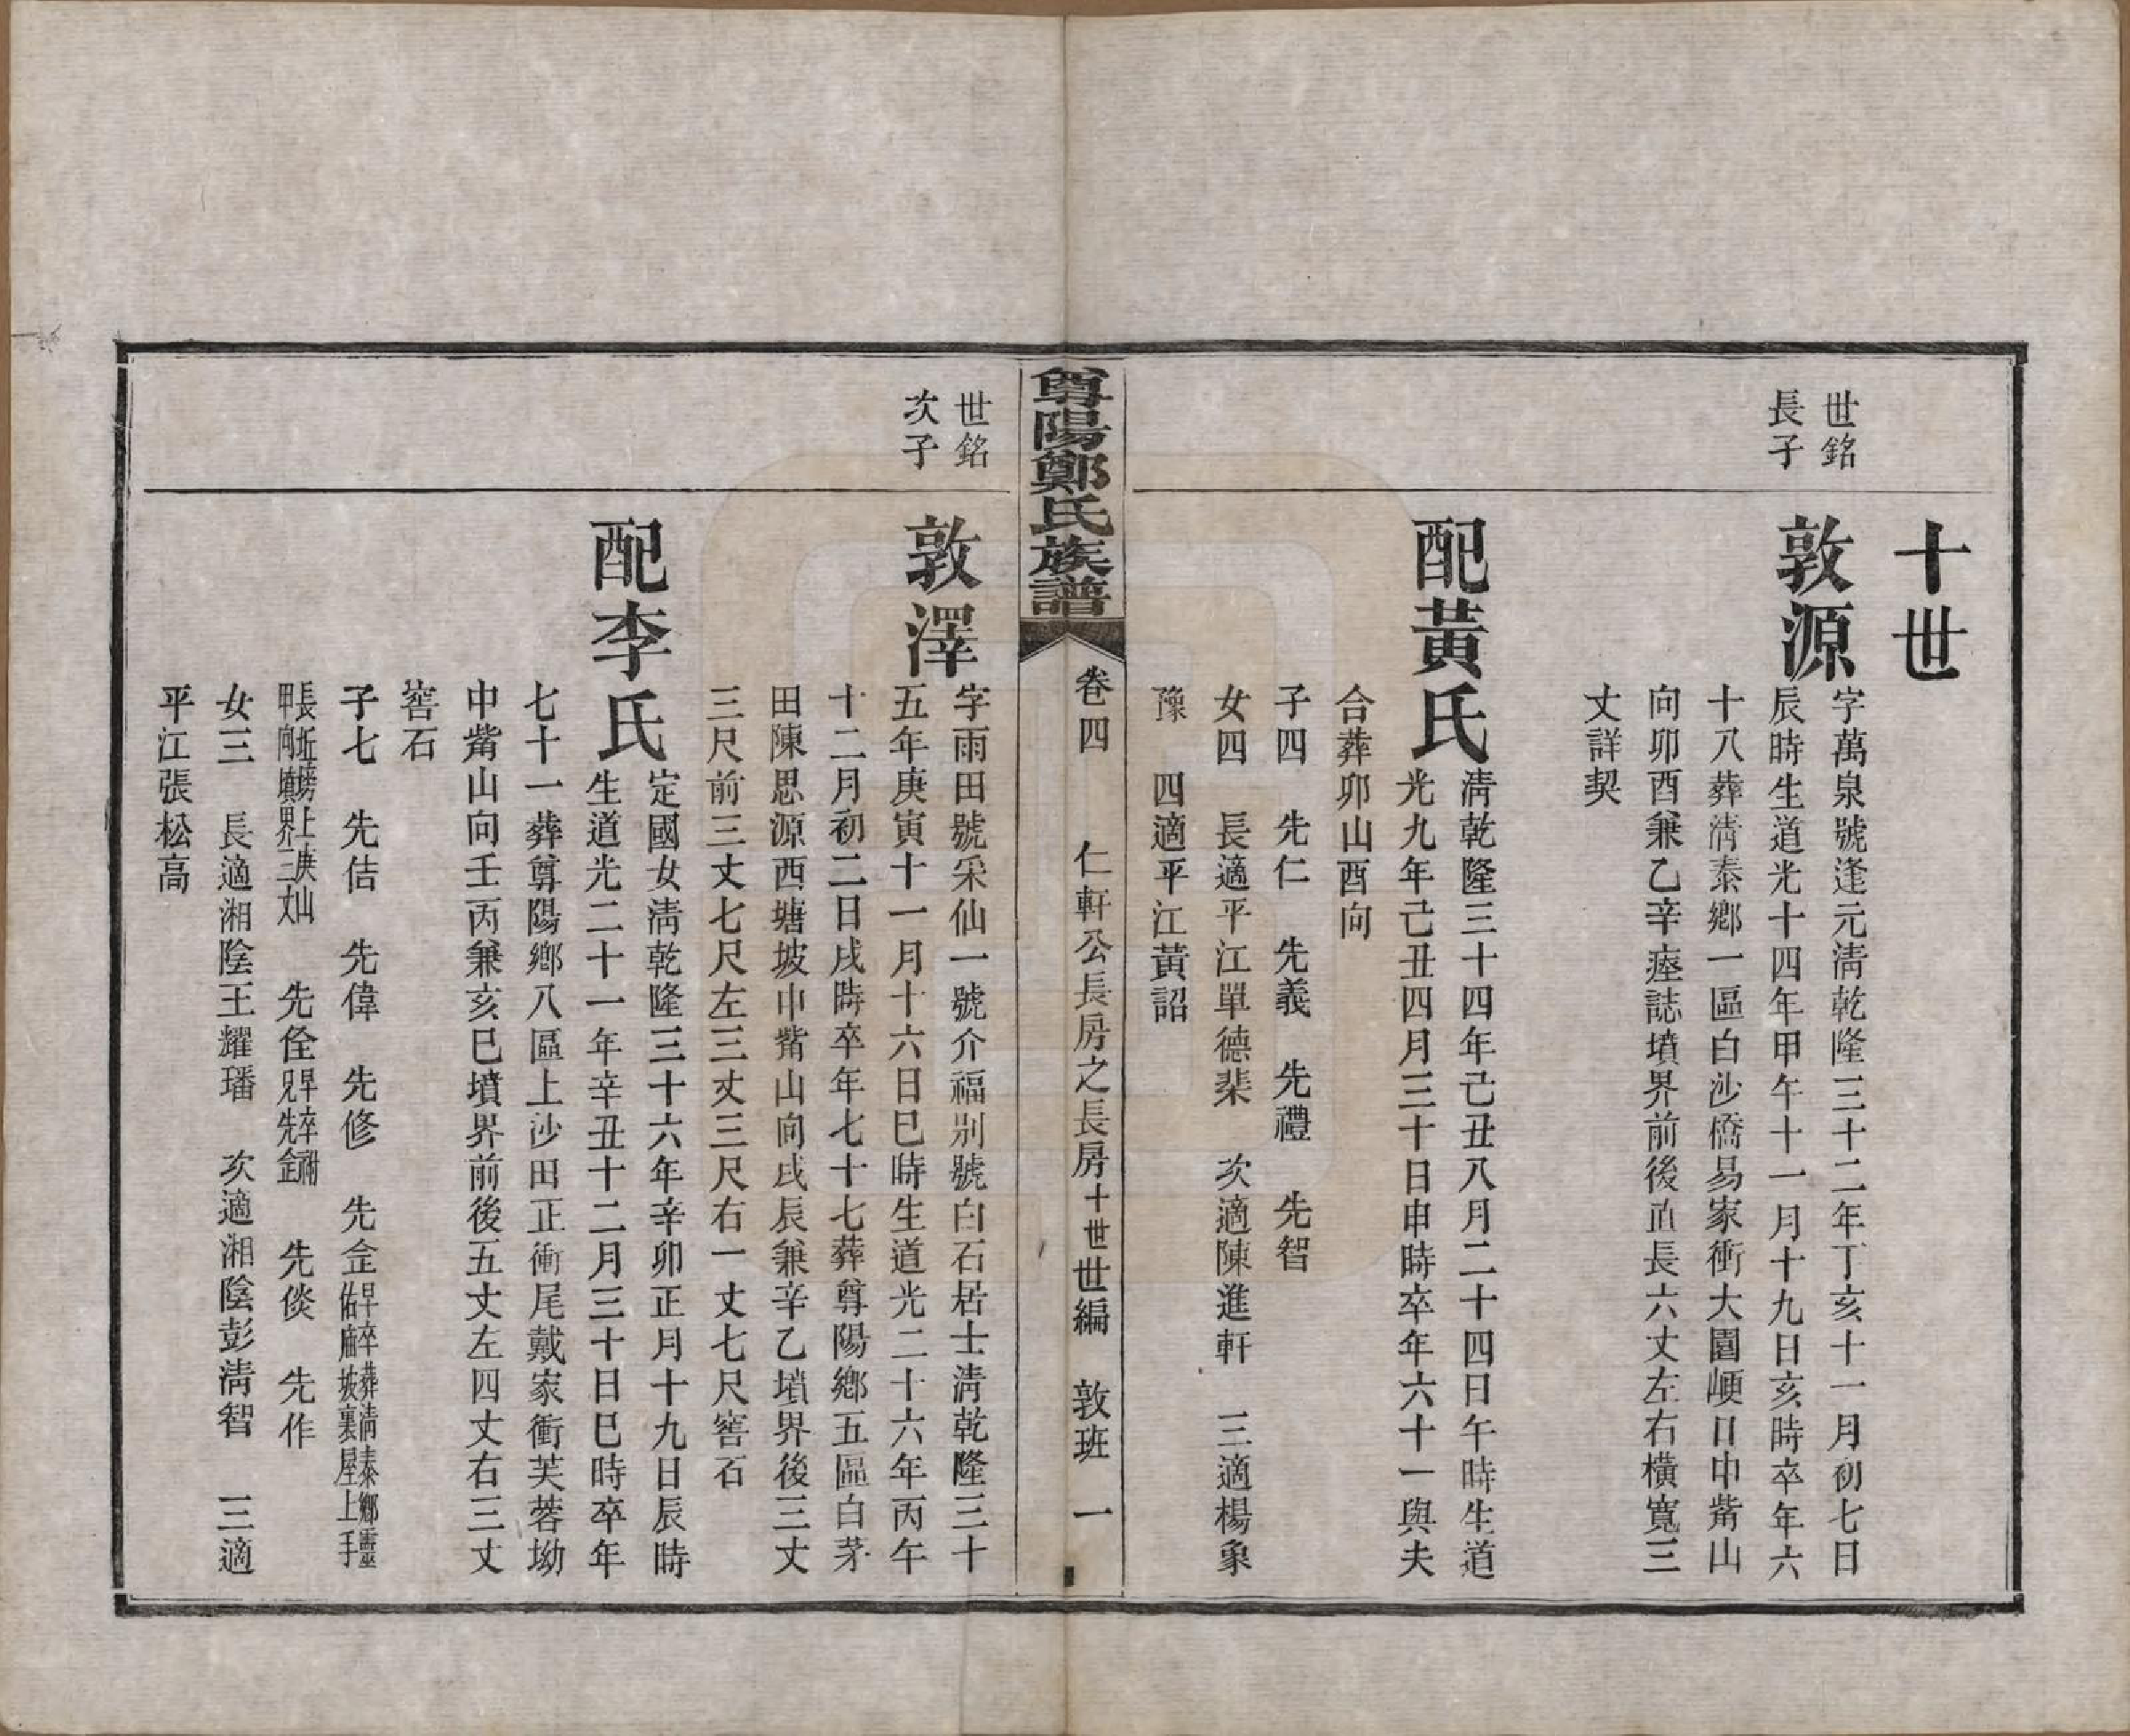 十世
世銘
長子
敦源
字萬泉號逢元淸乾隆三十二年丁亥十一月初七日
辰時生道光十四年甲午十一月十九日亥時卒年六
十八葬淸泰鄉一區白沙橋易家衝大園㟍日中觜山
向卯酉兼乙辛瘞誌墳界前後直長六丈左右橫寬三
丈詳契
配黃氏
淸乾隆三十四年己丑八月二十四日午時生道
光九年己丑四月三十日申時卒年六十一與夫
合葬卯山酉向
子四 先仁 先義 先禮 先智
女四 長適平江單德棐 次適陳進軒 三適楊象
豫 四適平江黃詔
尊陽鄭氏族譜
卷四 仁軒公長房之長房十世世編 敦班 一
世銘
次子
敦澤
字雨田號采仙一號介福別號白石居士淸乾隆三十
五年庚寅十一月十六日巳時生道光二十六年丙午
十二月初二日戌時卒年七十七葬尊陽鄉五區白茅
田陳思源西塘坡中觜山向戌辰兼辛乙墳界後三丈
三尺前三丈七尺左三丈三尺右一丈七尺窖石
配李氏
定國女淸乾隆三十六年辛卯正月十九日辰時
生道光二十一年辛丑十二月三十日巳時卒年
七十一葬尊陽鄉八區上沙田正衝尾戴家衝芙蓉坳
中觜山向壬丙兼亥巳墳界前後五丈左四丈右三丈
窖石
子七 先佶 先偉 先修 先企早卒葬淸泰鄉靈
佑廟坡裏屋上手
長坵塝上庚山
甲向墳界三丈 先佺早卒祔
兄先企 先倓 先作
女三 長適湘陰王耀璠 次適湘陰彭淸智 三適
平江張松高